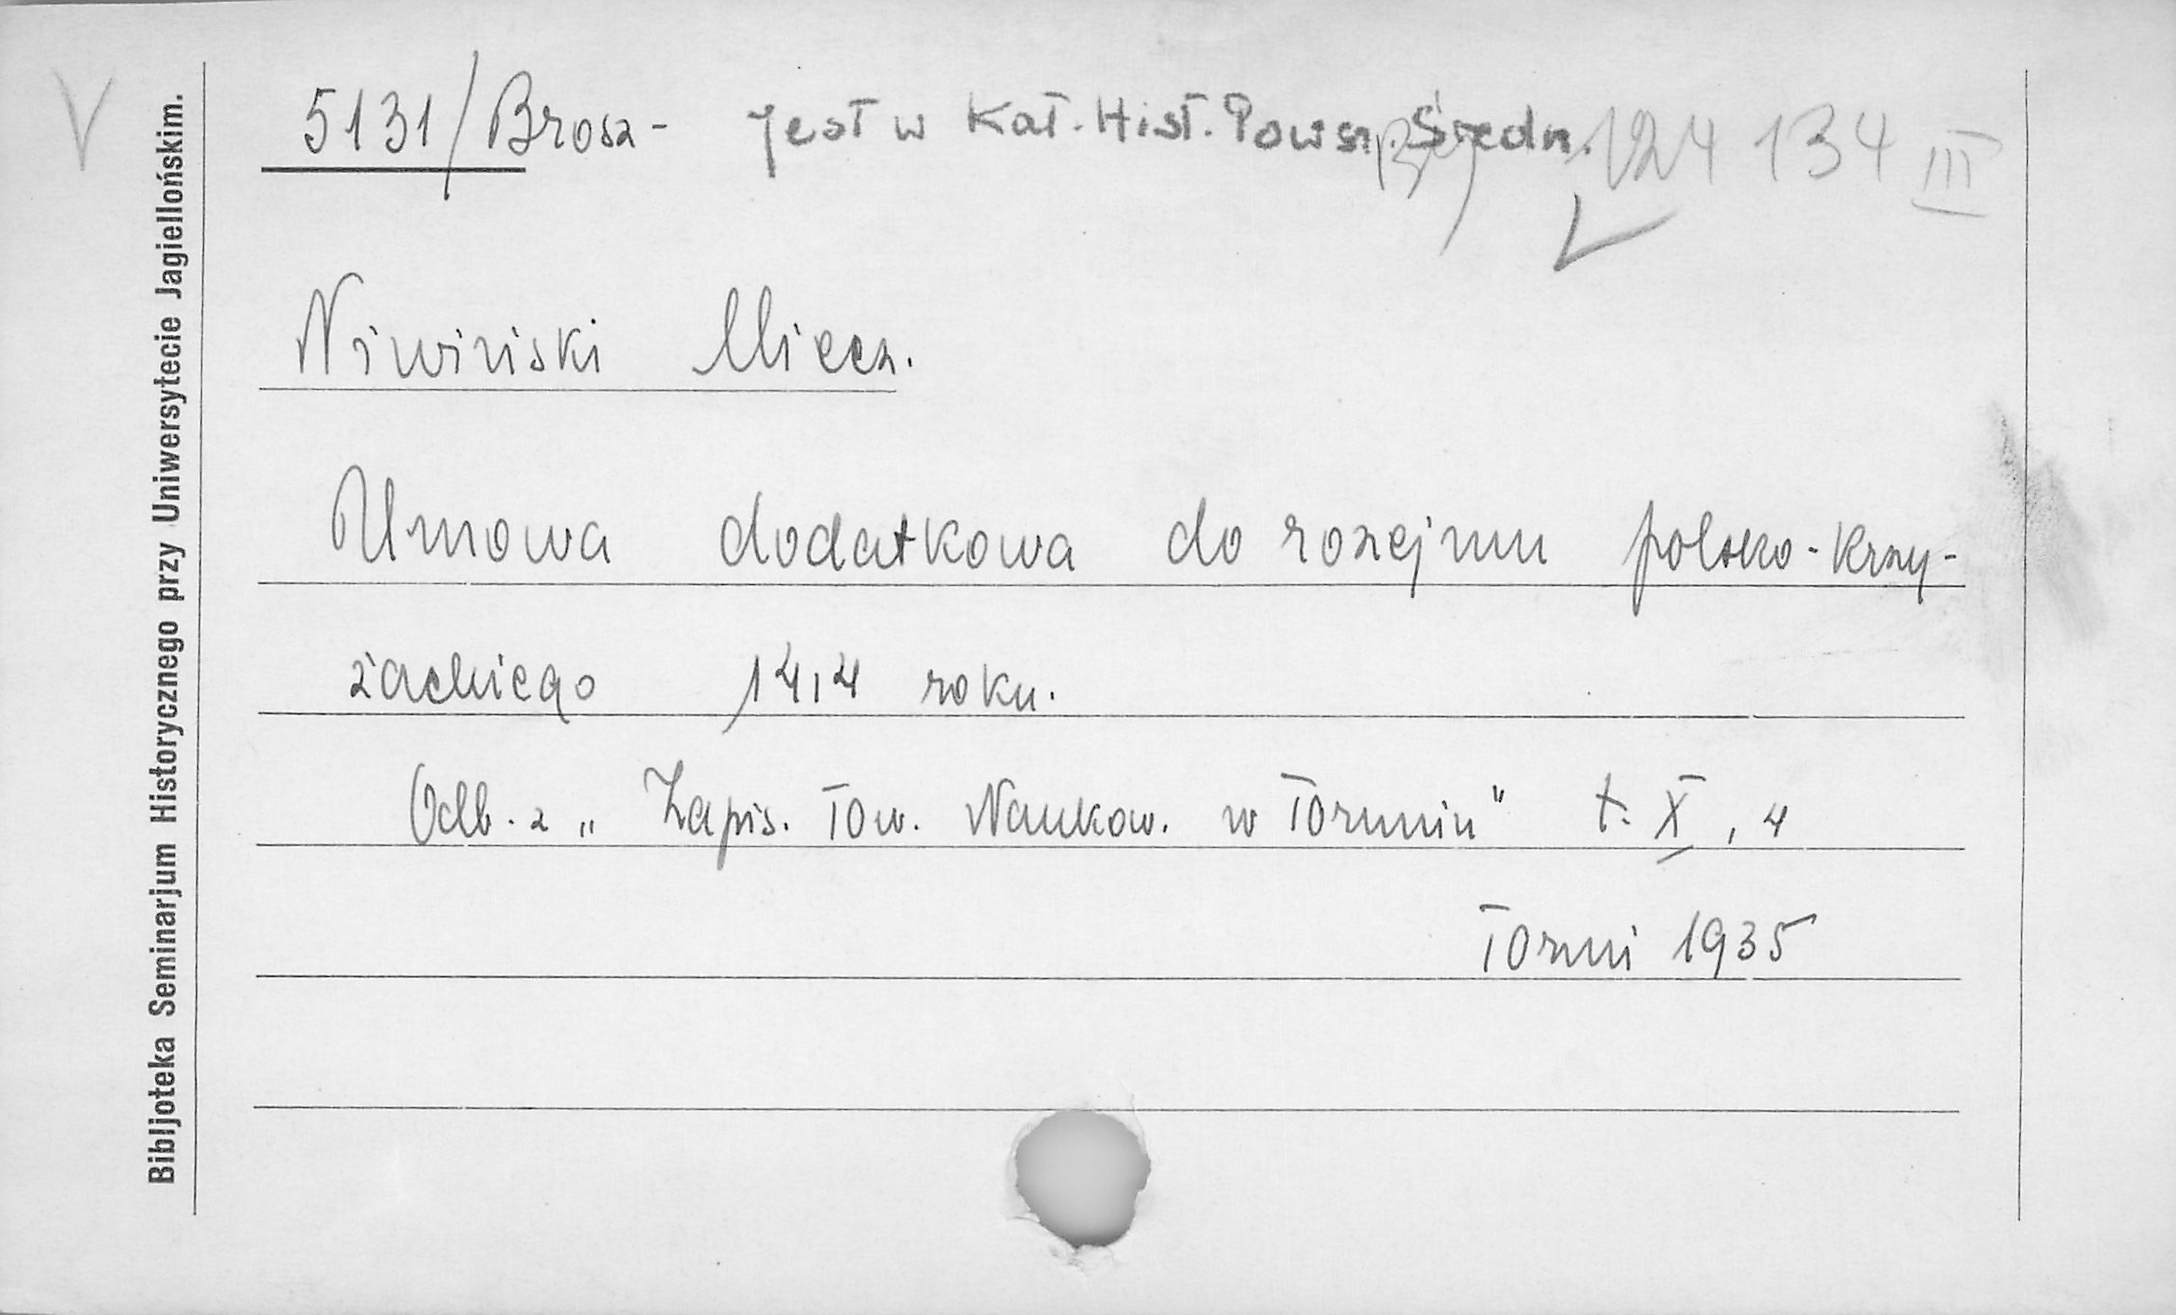 5131/Brosz- Jest w Kat. Hist. Powsz. Średn. BJ 124 134 III
Niwiński Miecz.
Umowa dodatkowa do rozejmu polsko-krzy-
żackiego 1414 roku.
Odb. z „Zapis. Tow. Naukow. w Toruniu" t. X, 4
Toruń 1935
Bibljoteka Seminarjum Historycznego przy Uniwersytecie Jagiellońskim.